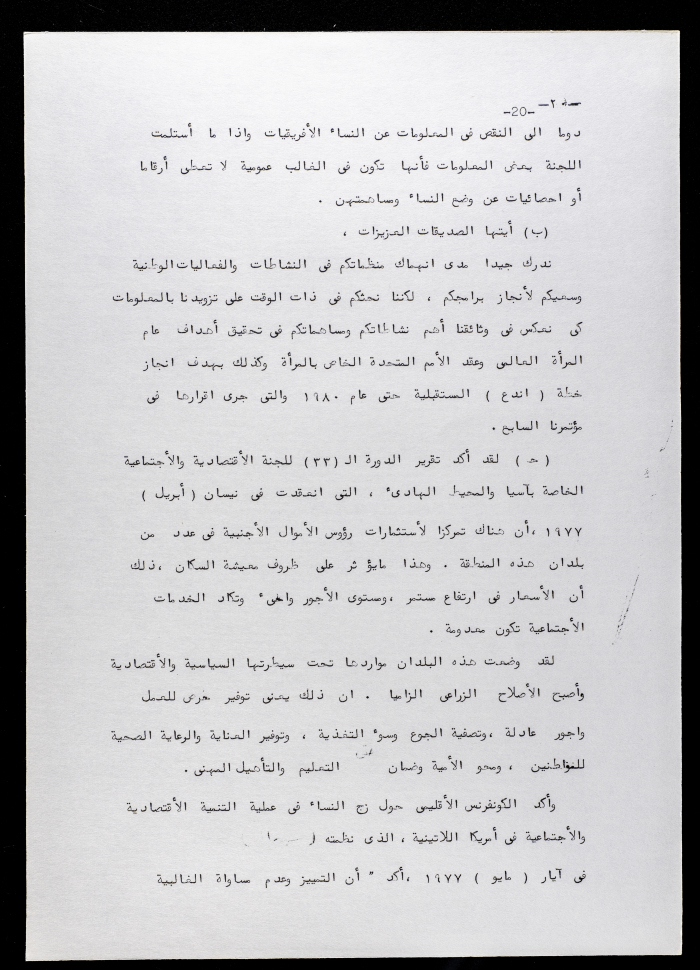 -٢٠-
-20-
دوما الى النقص فى المعلومات عن النساء الأفريقيات واذا ما أستلمت
اللجنة بعض المعلومات فأنها تكون فى الغالب عمومية لا تعطى أرقاما
أو احصائيات عن وضع النساء ومساهمتهن .
(ب) أيتها الصديقات العزيزات ،
ندرك جيدا مدى انهماك منظماتكم فى النشاطات والفعاليات الوطنية
وسعيكم لأنجاز برامجكم ، لكننا نحثكم فى ذات الوقت على تزويدنا بالمعلومات
كى نعكس فى وثائقنا أهم نشاطاتكم ومساهماتكم فى تحقيق أهداف عام
المرأة العالمى وعقد الأمم المتحدة الخاص بالمرأة وكذلك بهدف انجاز
خطة ( اندع ) المستقبلية حتى عام ١٩٨٠ والتى جرى اقرارها فى
مؤتمرنا السابع .
( حـ ) لقد أكد تقرير الدورة الـ (٣٣) للجنة الأقتصادية والأجتماعية
الخاصة بآسيا والمحيط الهادىء ، التى انعقدت فى نيسان ( أبريل )
١٩٧٧ ،أن هناك تمركزا لأستثمارات رؤوس الأموال الأجنبية فى عدد من
بلدان هذه المنطقة . وهذا مايؤ ثر على ظروف معيشة السكان ،ذلك
أن الأسعار فى ارتفاع مستمر ،ومستوى الأجور واطىء وتكاد الخدمات
الأجتماعية تكون معدومة .
لقد وضعت هذه البلدان مواردها تحت سيطرتها السياسية والأقتصادية
وأصبح الأصلاح الزراعى الزاميا . ان ذلك يعنى توفير فرص للعمل
واجور عادلة ،وتصفية الجوع وسوء التغذية ، وتوفير العناية والرعاية الصحية
للمواطنين ، ومحو الأمية وضمان التعليم والتأهيل المهنى .
وأكد الكونفرنس الأقليمى حول زج النساء فى عملية التنمية الأقتصادية
والأجتماعية فى أمريكا اللاتينية ، الذى نظمته
فى آيار ( مايو ) ١٩٧٧ ،أكد " أن التمييز وعدم مساواة الغالبية